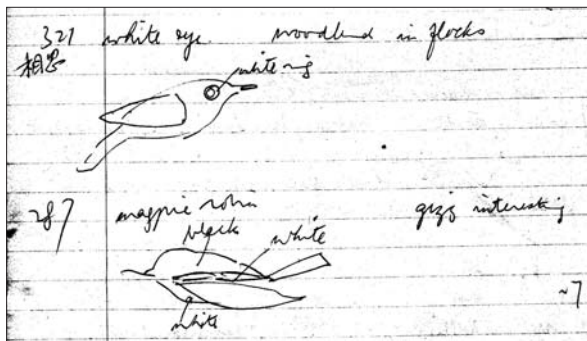 321 white eye woodland in flocks
相思
white ring
287 magpie robin gizz interesting
black
white
white
~7